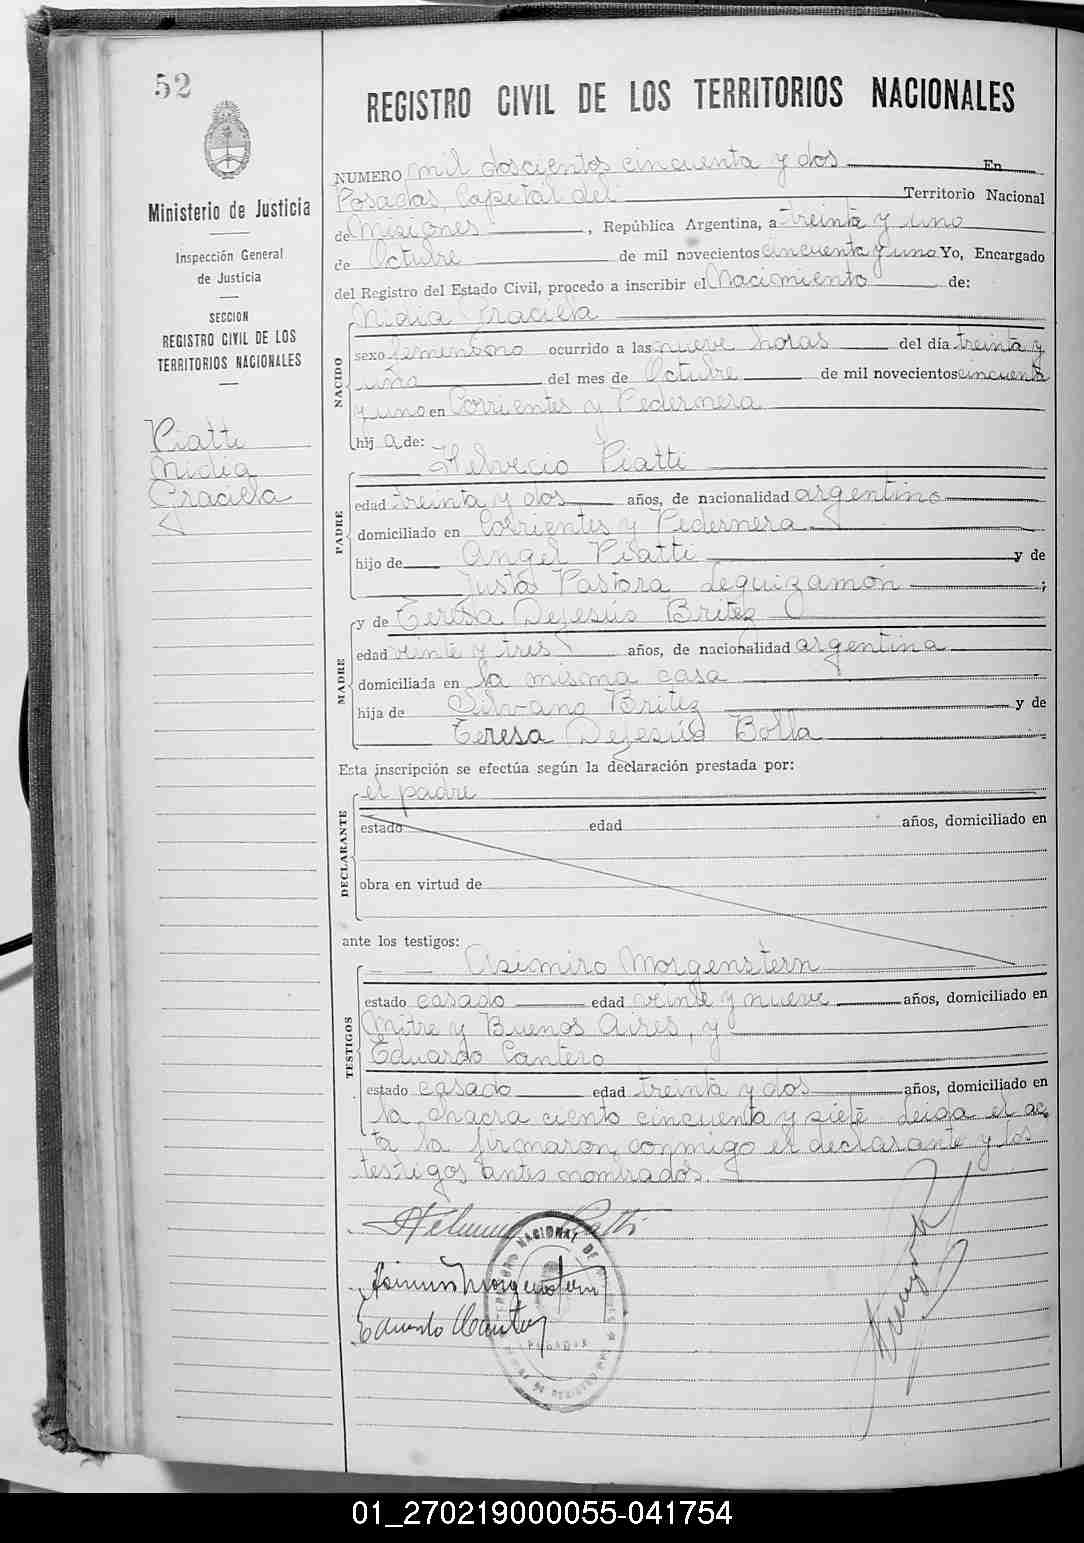 52
REGISTRO CIVIL DE LOS TERRITORIOS NACIONALES
Ministerio de Justicia
Inspección General
de Justicia
SECCION
REGISTRO CIVIL DE LOS
TERRITORIOS NACIONALES
Piatti
Nidia
Graciela
NUMERO mil doscientos cincuenta y dos En
Posadas, Capital del Territorio Nacional
de Misiones, República Argentina, a treinta y uno
de Octubre de mil novecientos cincuenta y uno Yo, Encargado
del Registro del Estado Civil, procedo a inscribir el Nacimiento de:
Nidia Graciela
NACIDO
sexo femenino ocurrido a las nueve horas del día treinta y
uno del mes de Octubre de mil novecientos cincuenta
y uno en Corrientes y Pedernera
hij a de:
Helvecio Piatti
PADRE
edad treinta y dos años, de nacionalidad argentino
domiciliado en Corrientes y Pedernera
hijo de Angel Piatti y de
Justa Pastora Leguizamón;
y de Teresa Dejesús Britez
MADRE
edad veinte y tres años, de nacionalidad argentina
domiciliada en la misma casa
hija de Silvano Britez y de
Teresa Dejesús Bolla
Esta inscripción se efectúa según la declaración prestada por:
el padre
DECLARANTE
estado edad años, domiciliado en
obra en virtud de
ante los testigos:
Casimiro Morgenstern
TESTIGOS
estado casado edad veinte y nueve años, domiciliado en
Mitre y Buenos Aires, y
Eduardo Cantero
estado casado edad treinta y dos años, domiciliado en
la chacra ciento cincuenta y siete. Leída el ac
ta la firmaron conmigo el declarante y los
testigos antes nombrados.
Helvecio Piatti
Casimiro Morgenstern
Eduardo Cantero
NACIONAL DE
POSADAS
01_270219000055-041754